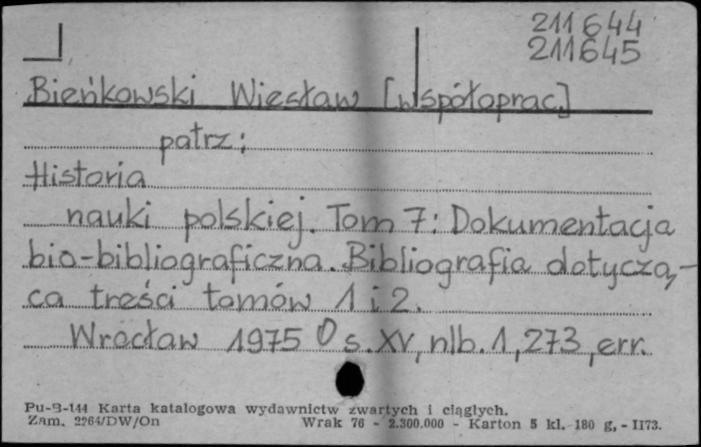 211644
211645
Bieńkowski Wiesław [współoprac.]
patrz:
Historia
nauki polskiej. Tom 7: Dokumentacja
bio-bibliograficzna. Bibliografia dotyczą-
ca treści tomów 1 i 2.
Wrocław 1975 O s. XV, nlb. 1, 273, err.
Pu-B-144 Karta katalogowa wydawnictw zwartych i ciągłych.
Zam. 2264/DW/On Wrak 76 - 2.300.000 - Karton 5 kl. 180 g, - II73.